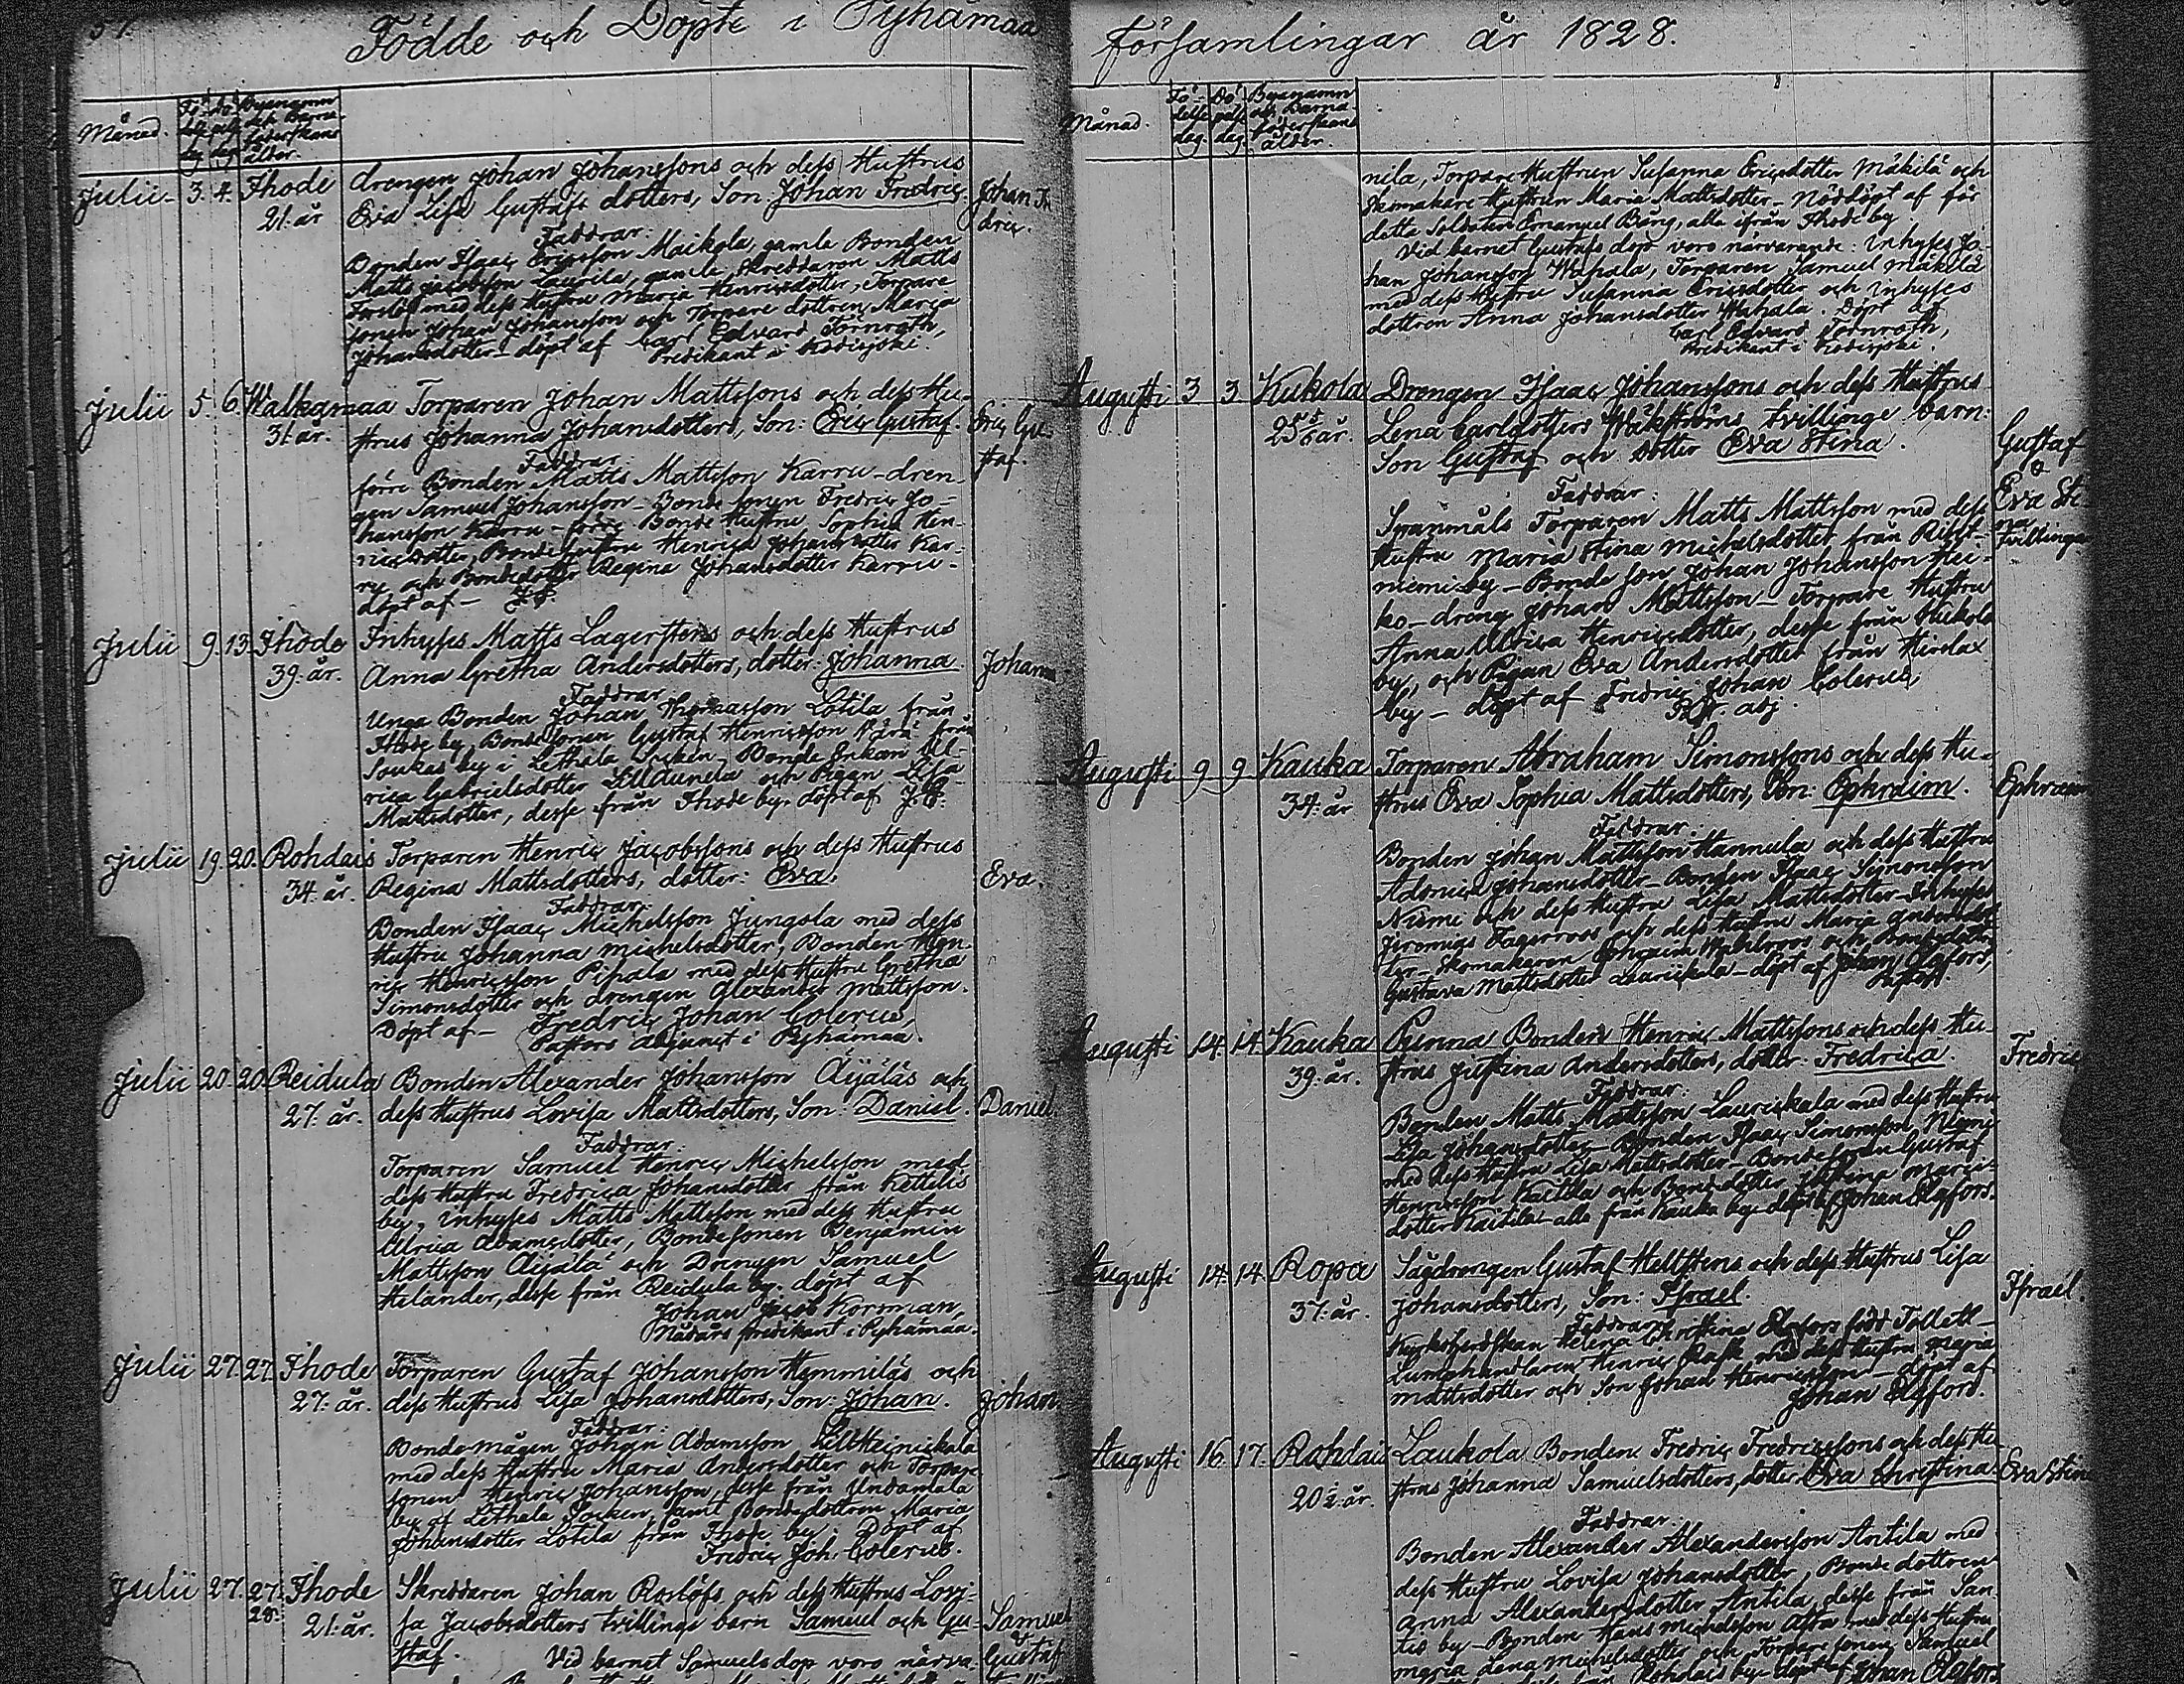 57.
Födde och Döpte i Pyhämaa
Månad.
Fö-
delse
dag
Dö
pelse
dag
Byanamn
och Barna-
föderskans
ålder.
Julii 3. 4. Ihode
21. år
drengen Johan Johanssons och dess Hustrus
Eva Lisa Gustafs dotters, Son Johan Fredric.
Johan Fre
dric.
Faddrar:
Bonden Isaac Ericsson Maikola, gamle Bonden
Matts Jacobsson Laurila, gamle Skreddaren Matts
med dess Hustru Maria Henricsdotter, Torpare
sonen Johan Johansson och Torpare dottren Maria
Johansdotter - döpt af Carl Edvard Törnroth,
Predikant i
Julii 5. 6. Walkamaa
31. år.
Torparen Johan Mattssons och dess Hu-
strus Johanna Johansdotters, Son: Eric Gustaf.
Eric Gu-
staf.
Faddrar
förre Bonden Matts Mattsson Karru - dren-
gen Samuel Johansson - Bonde sonen Fredric Jo-
hansson Karru - förre Bonde Hustru Sophia Hen-
ricsdotter, Bonde hustru Henrica Johansdotter Kar-
ru och Bondedotter Regina Johansdotter Karru -
döpt af -
Julii 9. 13. Ihode
39. år.
Inhyses Matts Lagerstens och dess Hustrus
Anna Gretha Andersdotters, dotter: Johanna
Johanna
Faddrar
Unga Bonden Johan Thomasson Lotila från
Ihode by, Bonde sonen Gustaf Henricsson från
Soukas by i Lethala Socken, Bonde Enkan Ul-
rica Gabrielsdotter och Pigan Lisa
Mattsdotter, desse från Ihode by. döpt af
Julii 19. 20. Rohdais
34. år.
Torparen Henric Jacobssons och dess Hustrus
Regina Mattsdotters, dotter: Eva.
Eva.
Faddrar:
Bonden Isaac Michelsson Jungola med dess
Hustru Johanna Michelsdotter, Bonden Hen-
ric Henricsson Pihala med dess Hustru Gretha
Simonsdotter och drengen Alexander Mattsson.
Döpt af - Fredric Johan Colerus,
Pastors Adjunct i Pyhämaa.
Julii 20. 20. Reidula
27. år.
Bonden Alexander Johansson Äijäläs och
dess Hustrus Lovisa Mattsdotters, Son: Daniel.
Daniel
Faddrar:
Torparen Samuel Henric Michelsson med
dess Hustru Fredrica Johansdotter från Kettelis
by, inhyses Matts Mattsson med dess Hustru
Ulrica Adamsdotter, Bondesonen Benjamin
Mattsson Äijälä och Drengen Samuel
Helander, desse från Reidula by. döpt af
Johan Jacob Korsman,
Nådårs predikant i Pyhämaa.
Julii 27. 27. Ihode
27. år.
Torparen Gustaf Johansson Hemmiläs och
dess Hustrus Lisa Johansdotters, Son: Johan.
Johan
Faddrar:
Bonde mågen Johan Adamsson Lillheinickala
med dess Hustru Maria Andersdotter och Torpare
sonen Henric Johansson, desse från Undamala
by af Lethala Socken, samt Bondedottren Maria
Johansdotter Lotila från Ihode by. Döpt af
Fredric Joh. Colerus.
Julii 27. 27. 28. Ihode
21. år.
Skreddaren Johan Roslöfs och dess Hustrus Lovi-
sa Jacobsdotters tvillinge barn Samuel och Gu-
staf. Vid barnet Samuels dop voro närva-
Samuel
Gustaf
Församlingar år 1828.
Månad.
Fö-
delse
dag.
Dö
pelse
dag.
Byanamn
och Barna-
föderskans
ålder.
nila, Torpare Hustrun Susanna Ericsdotter Mäkilä och
Skomakare Hustrun Maria Mattsdotter - Nöddöpt af för
dette Soldaten Emanuel Bång, alla ifrån Ihode by.
Vid barnet Gustafs dop voro närvarande: Inhyses Jo-
han Johansson Wahala, Torparen Samuel Mäkilä
med dess Hustru Susanna Ericsdotter och inhyses
dottren Anna Johansdotter Wahala. Döpt af
Carl Edvard Törnroth,
Predikant i
Augusti 3 3 Kukola
25 5/6 år.
Drengen Isaac Johanssons och dess Hustrus
Lena Carlsdotters Wikströms tvillinge barn:
Son Gustaf och dotter Eva Stina.
Gustaf
&
Eva Sti-
na
tvillingar
Faddrar:
Spannmåls Torparen Matts Mattsson med dess
Hustru Maria Stina Michelsdotter från
niemi by - Bonde son Johan Johansson Hei-
ko - dräng Johan Mattsson - Torpare Hustru
Anna Ulrica Henricsdotter, desse från Kukola
by, och Pigan Eva Andersdotter från Hirslax
by - döpt af Fredric Johan Colerus,
Past. adj.
Augusti 9 9 Kauka
34. år
Torparen Abraham Simonssons och dess Hu-
strus Eva Sophia Mattsdotters, Son: Ephraim.
Ephraim
Faddrar.
Bonden Johan Mattsson Hannula och dess Hustru
Johansdotter - Bonden Isaac Simonsson
Niemi och dess Hustru Lisa Mattsdotter - Inhyses
Fagerroos och dess Hustru Maria Andersdot
ter - Skomakaren Ephraim Wahlroos och Bondedotter
Gustava Mattsdotter Laurickala - döpt af Johan Elgfors,
Augusti 14. 14. Kauka
39. år.
Punna Bonden Henric Mattssons och dess Hu-
strus Justina Andersdotters, dotter: Fredrica.
Fredrica
Faddrar:
Bonden Matts Mattsson Laurickala med dess Hustru
Lisa Johansdotter - Bonden Isaac Simonsson Niemi
med dess Hustru Lisa Mattsdotter - Bondesonen Gustaf
Henricsson Kaitila och Bondedotter
dotter Kaitila - alla från Kauka by. döpt af Johan Elgfors.
Augusti 14. 14 Ropa
37. år.
Sågdrengen Gustaf Hellstens och dess Hustrus Lisa
Johansdotters, Son: Israel.
Israel.
Faddrar:
Helena Christina Elgfors född Tollett -
Lumphandlaren Henric Rask med dess Hustru Maria
Mattsdotter och Son Johan Henricsson - döpt af
Johan Elgfors.
Augusti 16. 17. Rohdais
20 1/2 år.
Laukola Bonden Fredric Fredricssons och dess Hu-
strus Johanna Samuelsdotters, dotter Eva Christina
Eva Stina
Faddrar:
Bonden Alexander Alexandersson Antila med
dess Hustru Lovisa Johansdotter, Bonde dottren
Anna Alexandersdotter Antila, desse från San-
tis by - Bonden Hans Michelsson med dess Hustru
Maria Lena Michelsdotter och Torpare sonen Samuel
Rohdais by - döpt af Johan Elgfors